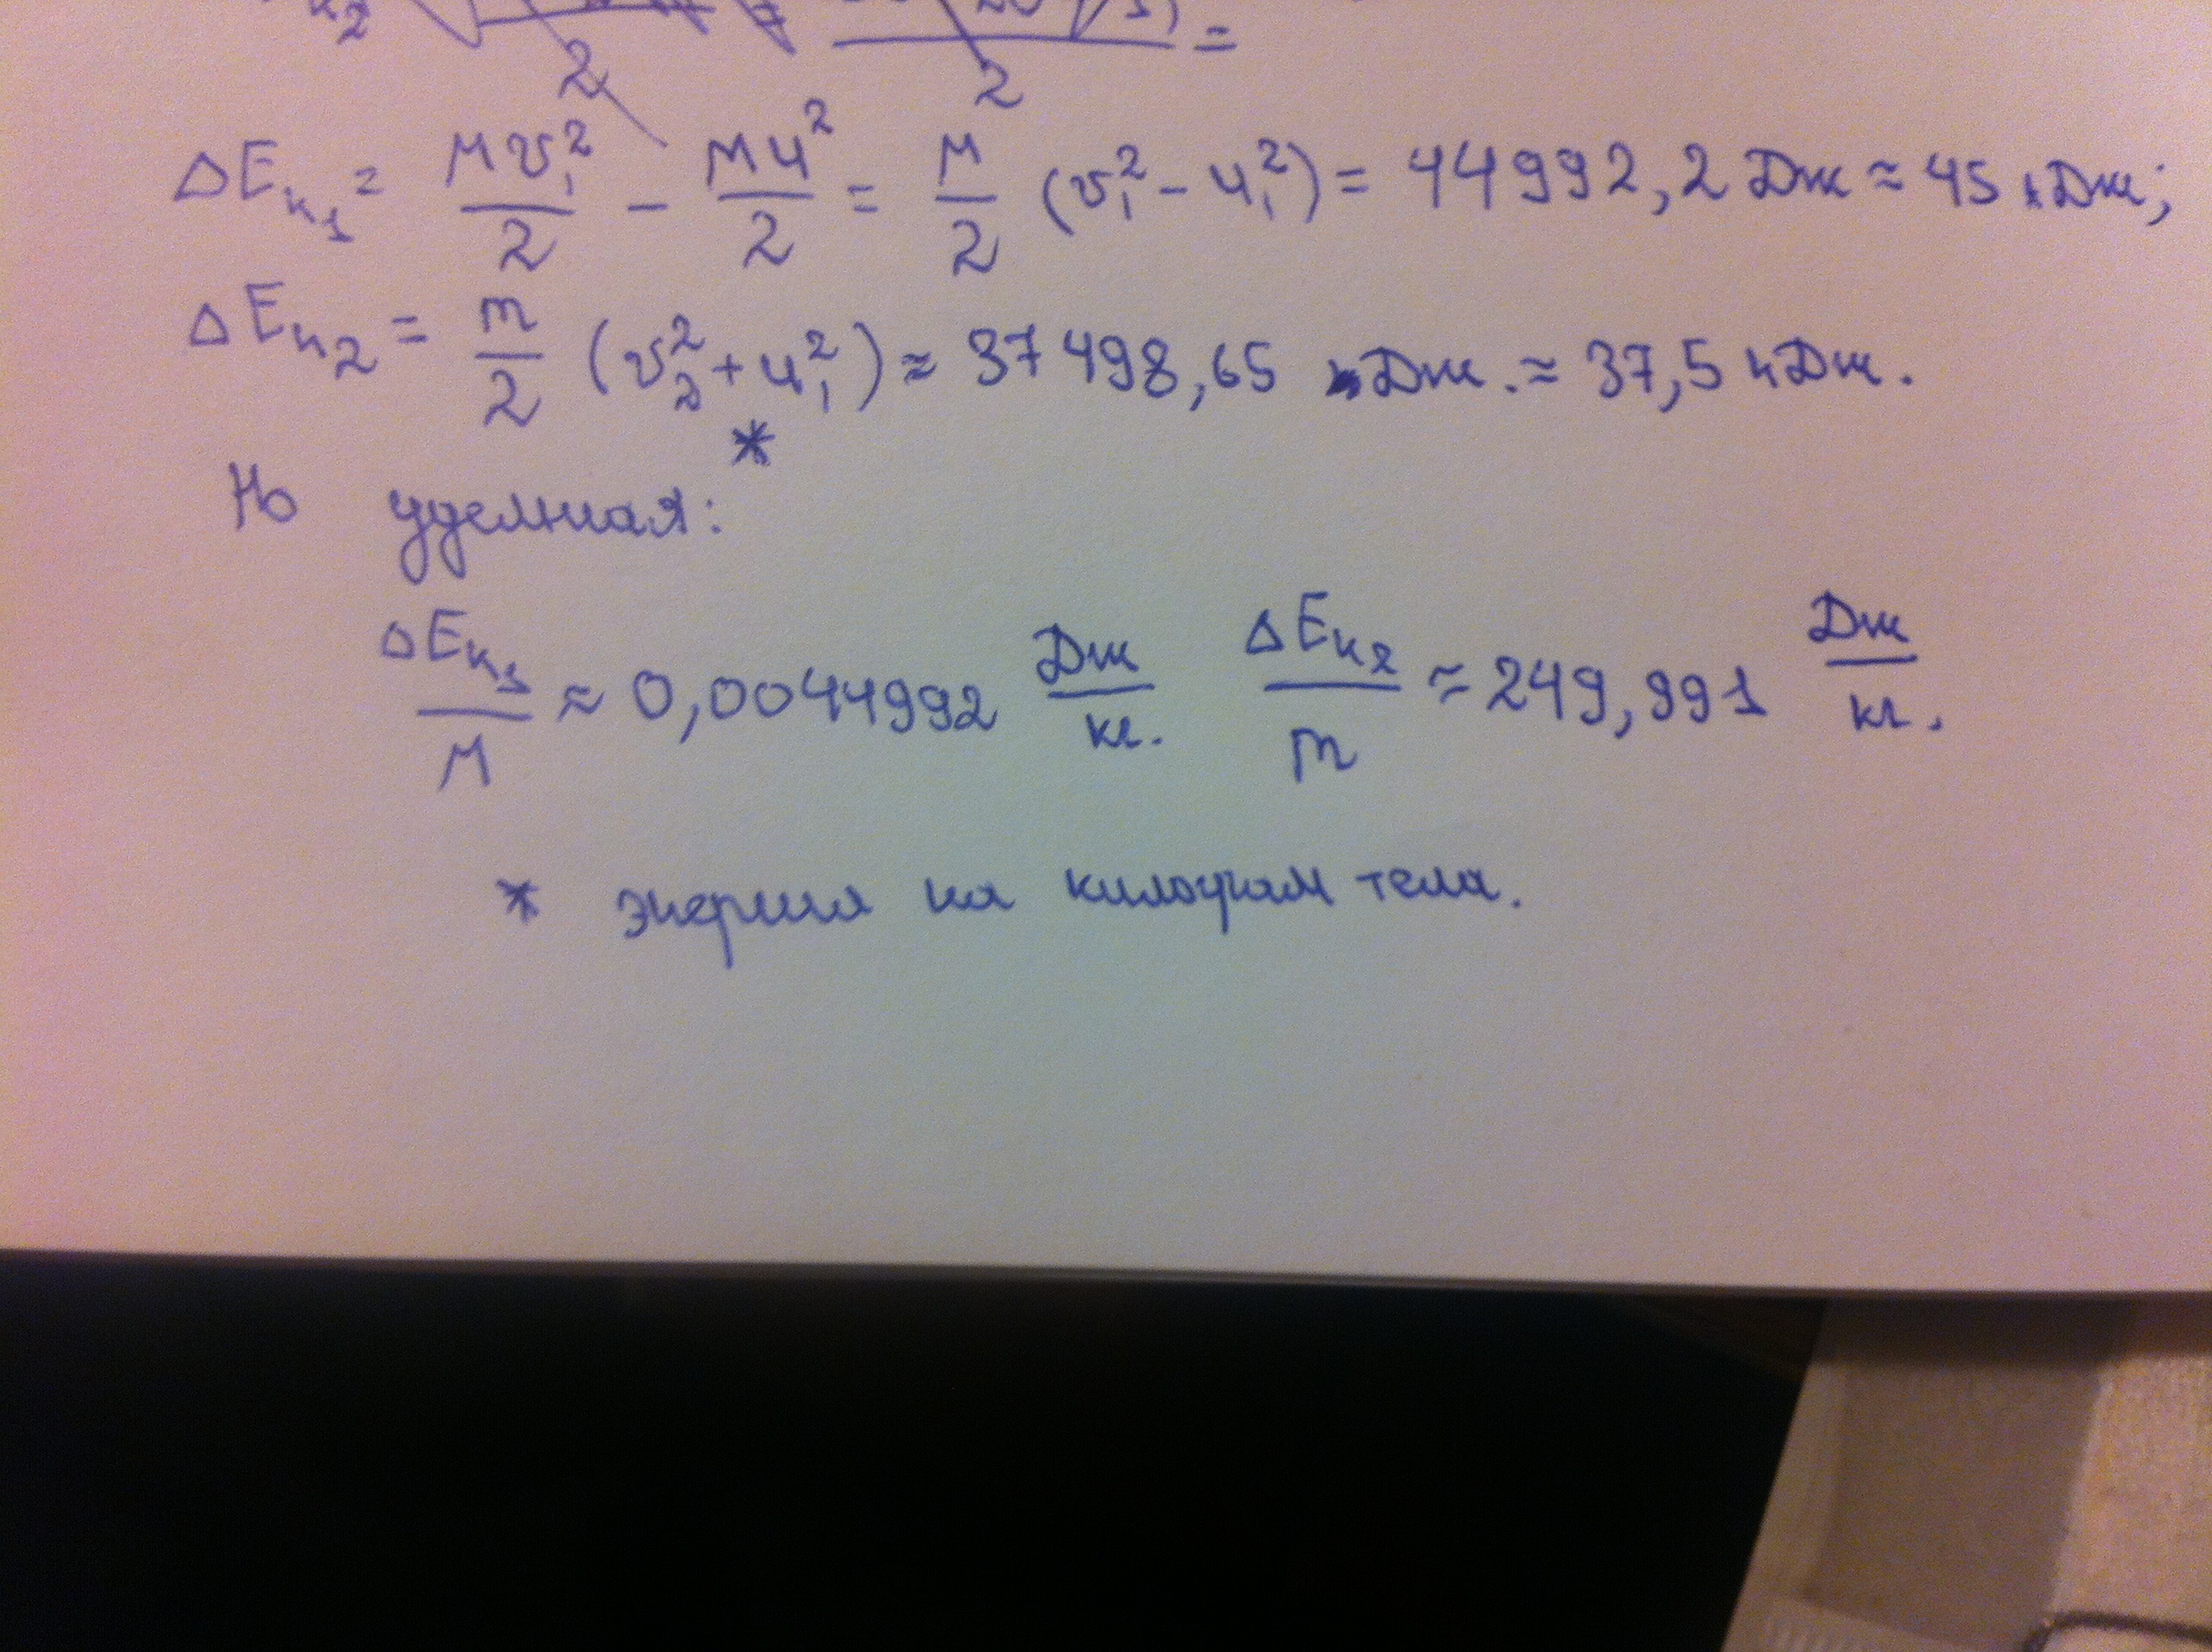 2 2 =
ΔEк₁ = Mv₁²/2 − Mu²/2 = M/2 (v₁² − u₁²) = 44992,2 Дж ≈ 45 кДж;
ΔEк₂ = m/2 (v₂² + u₁²) ≈ 37498,65 Дж. ≈ 37,5 кДж.
Но удельная*:
ΔEк₁/M ≈ 0,0044992 Дж/кг. ΔEк₂/m ≈ 249,991 Дж/кг.
* энергия на килограм тела.